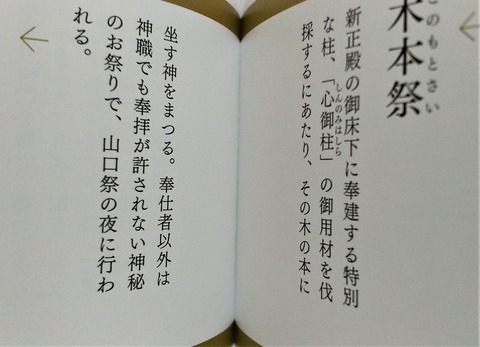 このもとさい
木本祭
新正殿の御床下に奉建する特別
な柱、「心御柱」の御用材を伐
しんのみはしら
採するにあたり、その木の本に
坐す神をまつる。奉仕者以外は
神職でも奉拝が許されない神秘
のお祭りで、山口祭の夜に行わ
れる。